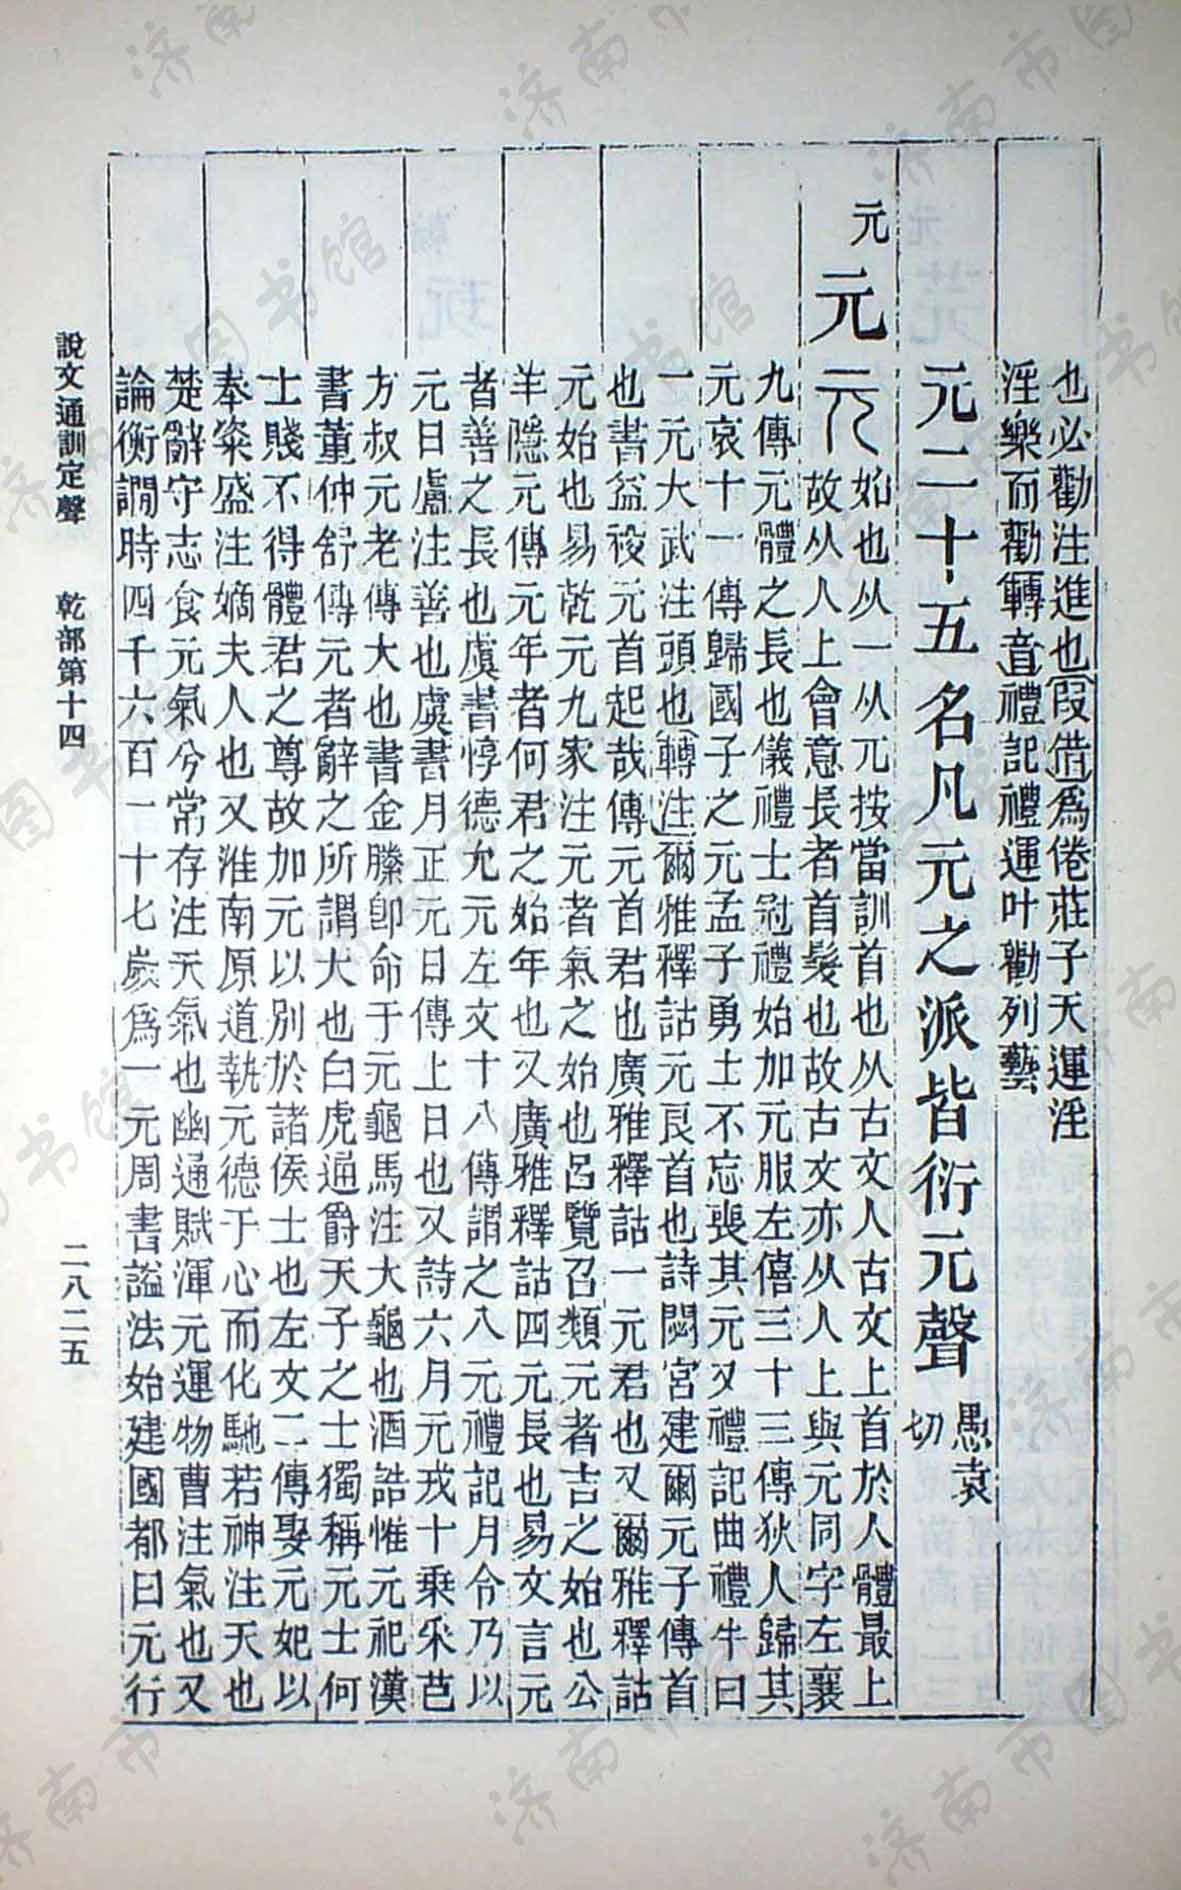 也必勸注進也叚借爲倦莊子天運淫
淫樂而勸轉音禮記禮運叶勸列藝
元二十五名凡元之派皆衍元聲 愚袁切
元
元
始也从一从兀按當訓首也从古文人古文上首於人體最上
故从人上會意長者首髮也故古文亦从人上與元同字左襄
九傳元體之長也儀禮士冠禮始加元服左僖三十三傳狄人歸其
元哀十一傳歸國子之元孟子勇士不忘喪其元又禮記曲禮牛曰
一元大武注頭也轉注爾雅釋詁元良首也詩閟宮建爾元子傳首
也書益稷元首起哉傳元首君也廣雅釋詁一元君也又爾雅釋詁
元始也易乾元九家注元者氣之始也呂覽召類元者吉之始也公
羊隱元傳元年者何君之始年也又廣雅釋詁四元長也易文言元
者善之長也虞書惇德允元左文十八傳謂之八元禮記月令乃以
元日盧注善也虞書月正元日傳上日也又詩六月元戎十乘采芑
方叔元老傳大也書金縢卽命于元龜馬注大龜也酒誥惟元祀漢
書董仲舒傳元者辭之所謂大也白虎通爵天子之士獨稱元士何
士賤不得體君之尊故加元以別於諸侯士也左文二傳娶元妃以
奉粢盛注嫡夫人也又淮南原道執元德于心而化馳若神注天也
楚辭守志食元氣兮常存注天氣也幽通賦渾元運物曹注氣也又
論衡讇時四千六百一十七歲爲一元周書謚法始建國都曰元行
說文通訓定聲 乾部第十四 二八二五
济南市图书馆